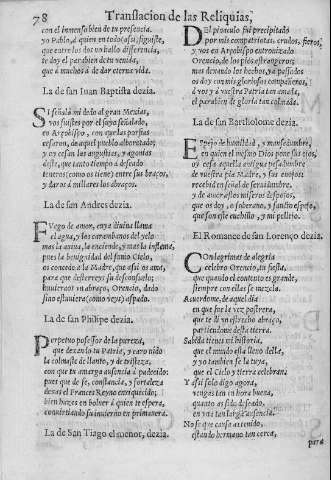 78 Translacion de las Reliquias,
con el inmenso bien de tu presencia.
yo Pablo, à quien en todo assi siguiste,
que entre los dos un hallo differencia,
te doy el parabien de tu venida,
que à muchos à de dar eterna vida.
La de san Iuan Baptista dezia.
SI señalà mi dedo al gran Mexias,
vos fuistes por el suyo señalado,
en Arçobispo, con que las porfias
cessaron, de aquel pueblo alborotado;
y oy cessan las angustias, y agonias
deste, que tanto tiempo à deseado
teneros (como os tiene) entre sus braços,
y daros à millares los abraços.
La de san Andres dezia.
FVego de amor, cuya divina llama
el agua, y los carambanos del yelo
mas la aviva, la enciende, y mas la inflama,
pues la benignidad del sumo Cielo,
os concede a la Madre, que assi os ama,
para que desterreys su desconsuelo;
hincarase un abraço, Orencio, dado
sino estuviera (como veys) aspado.
La de san Philipe dezia.
PErpetuo possessor de la pureza,
que dexando tu Patria, y caro nido
la colmaste de llanto, y de tristeza,
con que tu amarga ausencia à padecido:
pues que de fe, constancia, y fortaleza
dexas el Frances Reyno enriquecido;
bien hazes en bolver à quien te espera,
convirtiendo su invierno en primavera.
La de San Tiago el menor, dezia.
DEl pinaculo fui precipitado
por mis compatriotas, crudos, fieros,
y vos en Arçobispo entronizado
Orencio, de los pios estrangeros;
mas dexando los hechos, ya passados
oy doy con mis gloriosos compañeros,
à vos y à vuestra Patria tan amada,
el parabien de gloria tan colmada.
La de san Bartholome dezia.
ESpejo de humildad, y mansedumbre,
en quien el mesmo Dios pone sus ojos,
oy cesso aquella antigua pesadumbre
de vuestra pia Madre, y sus enojos:
recebid en señal de servidumbre,
y de aver a sus miseros despojos,
que os doy, o soberano, y sancto espejo,
que son este cuchillo, y mi pellejo.
El Romance de san Lorenço dezia.
COn lagrimas de alegria
celebro Orencio, tu fiesta,
que quando el contento es grande,
siempre con ellas se mezcla.
Acuerdome, de aquel dia
en que fue la vez postrera,
que te di un estrecho abraço,
partiendome desta tierra.
Sabida tienes mi historia,
que el mundo està lleno della,
y yo tambien se la tuya,
que el Cielo y tierra celebran:
Y assi solo digo agora,
vengas tan en hora buena,
quanto as sido deseado,
en vna tan larga ausencia.
No se que causa à tenido,
estando hermano tan cerca,
para